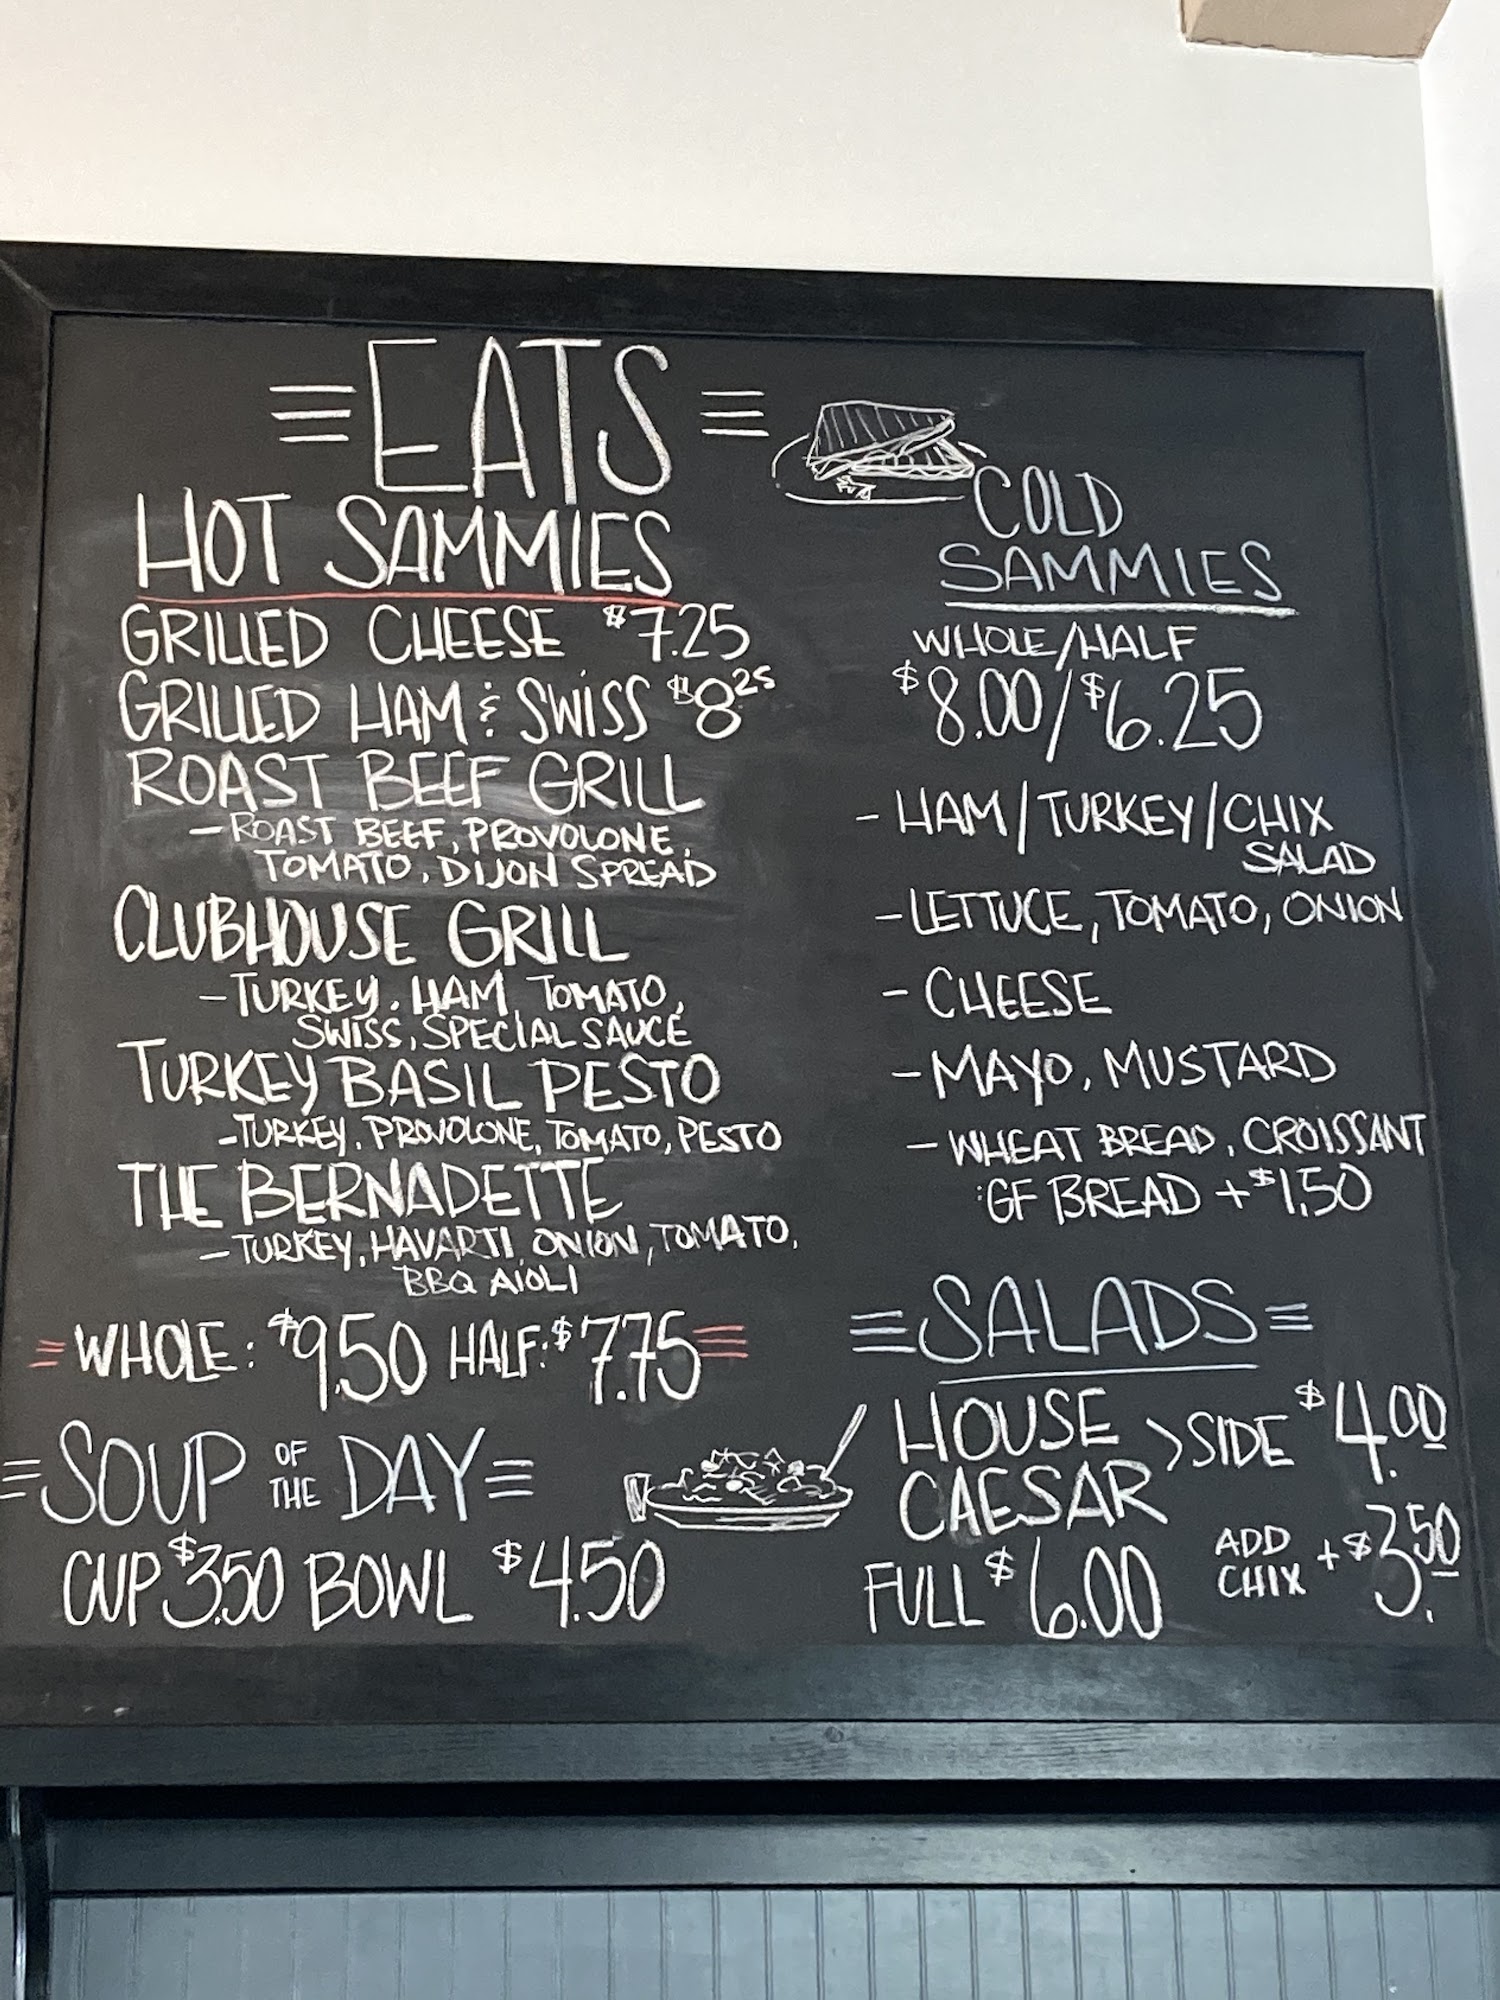 EATS
HOT SAMMIES
GRILLED CHEESE $7.25
GRILLED HAM & SWISS $8²⁵
ROAST BEEF GRILL
- ROAST BEEF, PROVOLONE,
TOMATO, DIJON SPREAD
CLUBHOUSE GRILL
- TURKEY, HAM, TOMATO,
SWISS, SPECIAL SAUCE
TURKEY BASIL PESTO
- TURKEY, PROVOLONE, TOMATO, PESTO
THE BERNADETTE
- TURKEY, HAVARTI, ONION, TOMATO,
BBQ AIOLI
WHOLE: $9.50 HALF: $7.75
SOUP OF THE DAY
CUP $3.50 BOWL $4.50
COLD
SAMMIES
WHOLE/HALF
$8.00/$6.25
- HAM/TURKEY/CHIX
SALAD
- LETTUCE, TOMATO, ONION
- CHEESE
- MAYO, MUSTARD
- WHEAT BREAD, CROISSANT
:GF BREAD +$1.50
SALADS
HOUSE
CAESAR > SIDE $4.00
FULL $6.00
ADD
CHIX +$3.50